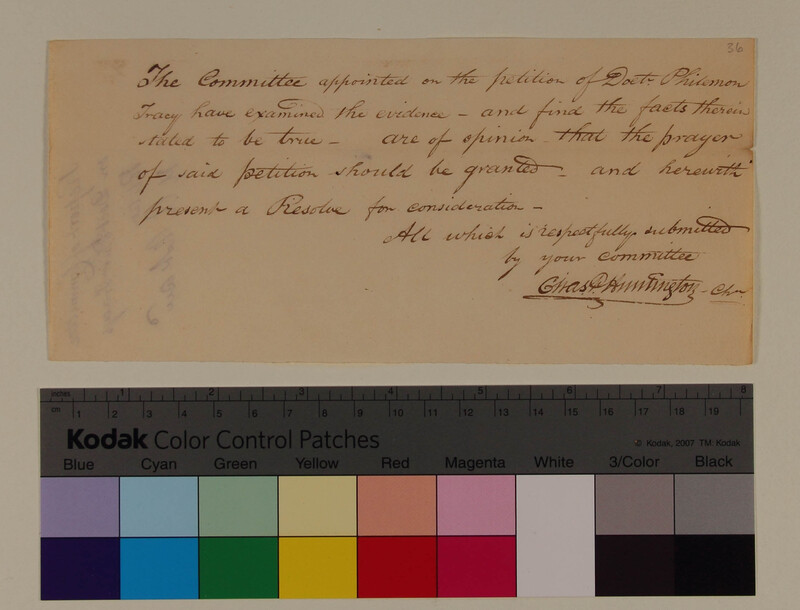 36
The Committee appointed on the petition of Doctr Philemon
Tracy have examined the evidence – and find the facts therein
stated to be true – are of opinion – that the prayer
of said petition should be granted – and herewith
present a Resolve for consideration –
All which is respectfully submitted
by your committee
Chas P. Huntington – Chn
inches 1 2 3 4 5 6 7 8
cm 1 2 3 4 5 6 7 8 9 10 11 12 13 14 15 16 17 18 19
Kodak Color Control Patches
© Kodak, 2007 TM: Kodak
Blue Cyan Green Yellow Red Magenta White 3/Color Black